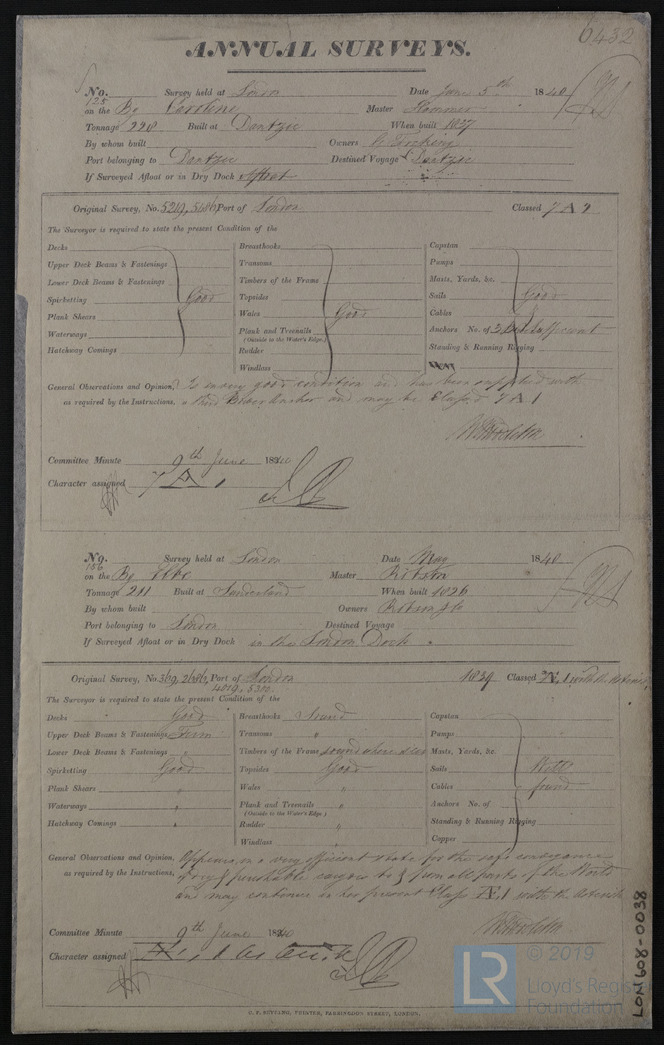 6432
ANNUAL SURVEYS.
No. 125 Survey held at London Date June 5th 1840
on the Bg Caroline Master
Tonnage 228 Built at Dantzic When built 1827
By whom built Owners
Port belonging to Dantzic Destined Voyage Dantzic
If Surveyed Afloat or in Dry Dock Afloat
Original Survey, No. Port of London Classed 7 A
The Surveyor is required to state the present Condition of the
Decks Breasthooks Capstan
Upper Deck Beams & Fastenings Transoms Pumps
Lower Deck Beams & Fastenings Timbers of the Frame Masts, Yards, &c.
Spirketting Good Topsides Sails Good
Plank Shears Wales Good Cables
Waterways Plank and Treenails Anchors No. of 3 Sufficient
(Outside to the Water's Edge.)
Hatchway Comings Rudder Standing & Running Rigging
Windlass
General Observations and Opinion, Is in very good condition and has been supplied with
as required by the Instructions, a third Bower Anchor and may be Classed 7 A 1
Committee Minute 9th June 1840
Character assigned 7 A 1
No. 156 Survey held at London Date May 1840
on the Bg Elbe Master Robson
Tonnage 211 Built at Sunderland When built 1826
By whom built Owners Robson &c
Port belonging to London Destined Voyage
If Surveyed Afloat or in Dry Dock in the London Dock.
Original Survey, No. 369, 2686, Port of London 1839 Classed Æ 1 with the Asterisk
4019, 5302
The Surveyor is required to state the present Condition of the
Decks Good Breasthooks Sound Capstan
Upper Deck Beams & Fastenings Firm Transoms " Pumps
Lower Deck Beams & Fastenings " Timbers of the Frame sound where seen Masts, Yards, &c.
Spirketting Good Topsides Good Sails Well
Plank Shears " Wales " Cables found
Waterways " Plank and Treenails " Anchors No. of
(Outside to the Water's Edge.)
Hatchway Comings " Rudder " Standing & Running Rigging
Windlass Copper
General Observations and Opinion, Appears in a very efficient state for the safe conveyance
as required by the Instructions, of dry & perishable cargoes to & from all parts of the World
and may continue in her present Class Æ 1 with the Asterisk
Committee Minute 9th June 1840
Character assigned Æ 1
C. F. SEYFANG, PRINTER, FARRINGDON STREET, LONDON.
LON608-0038
© 2019
LR Lloyd's Register
Foundation